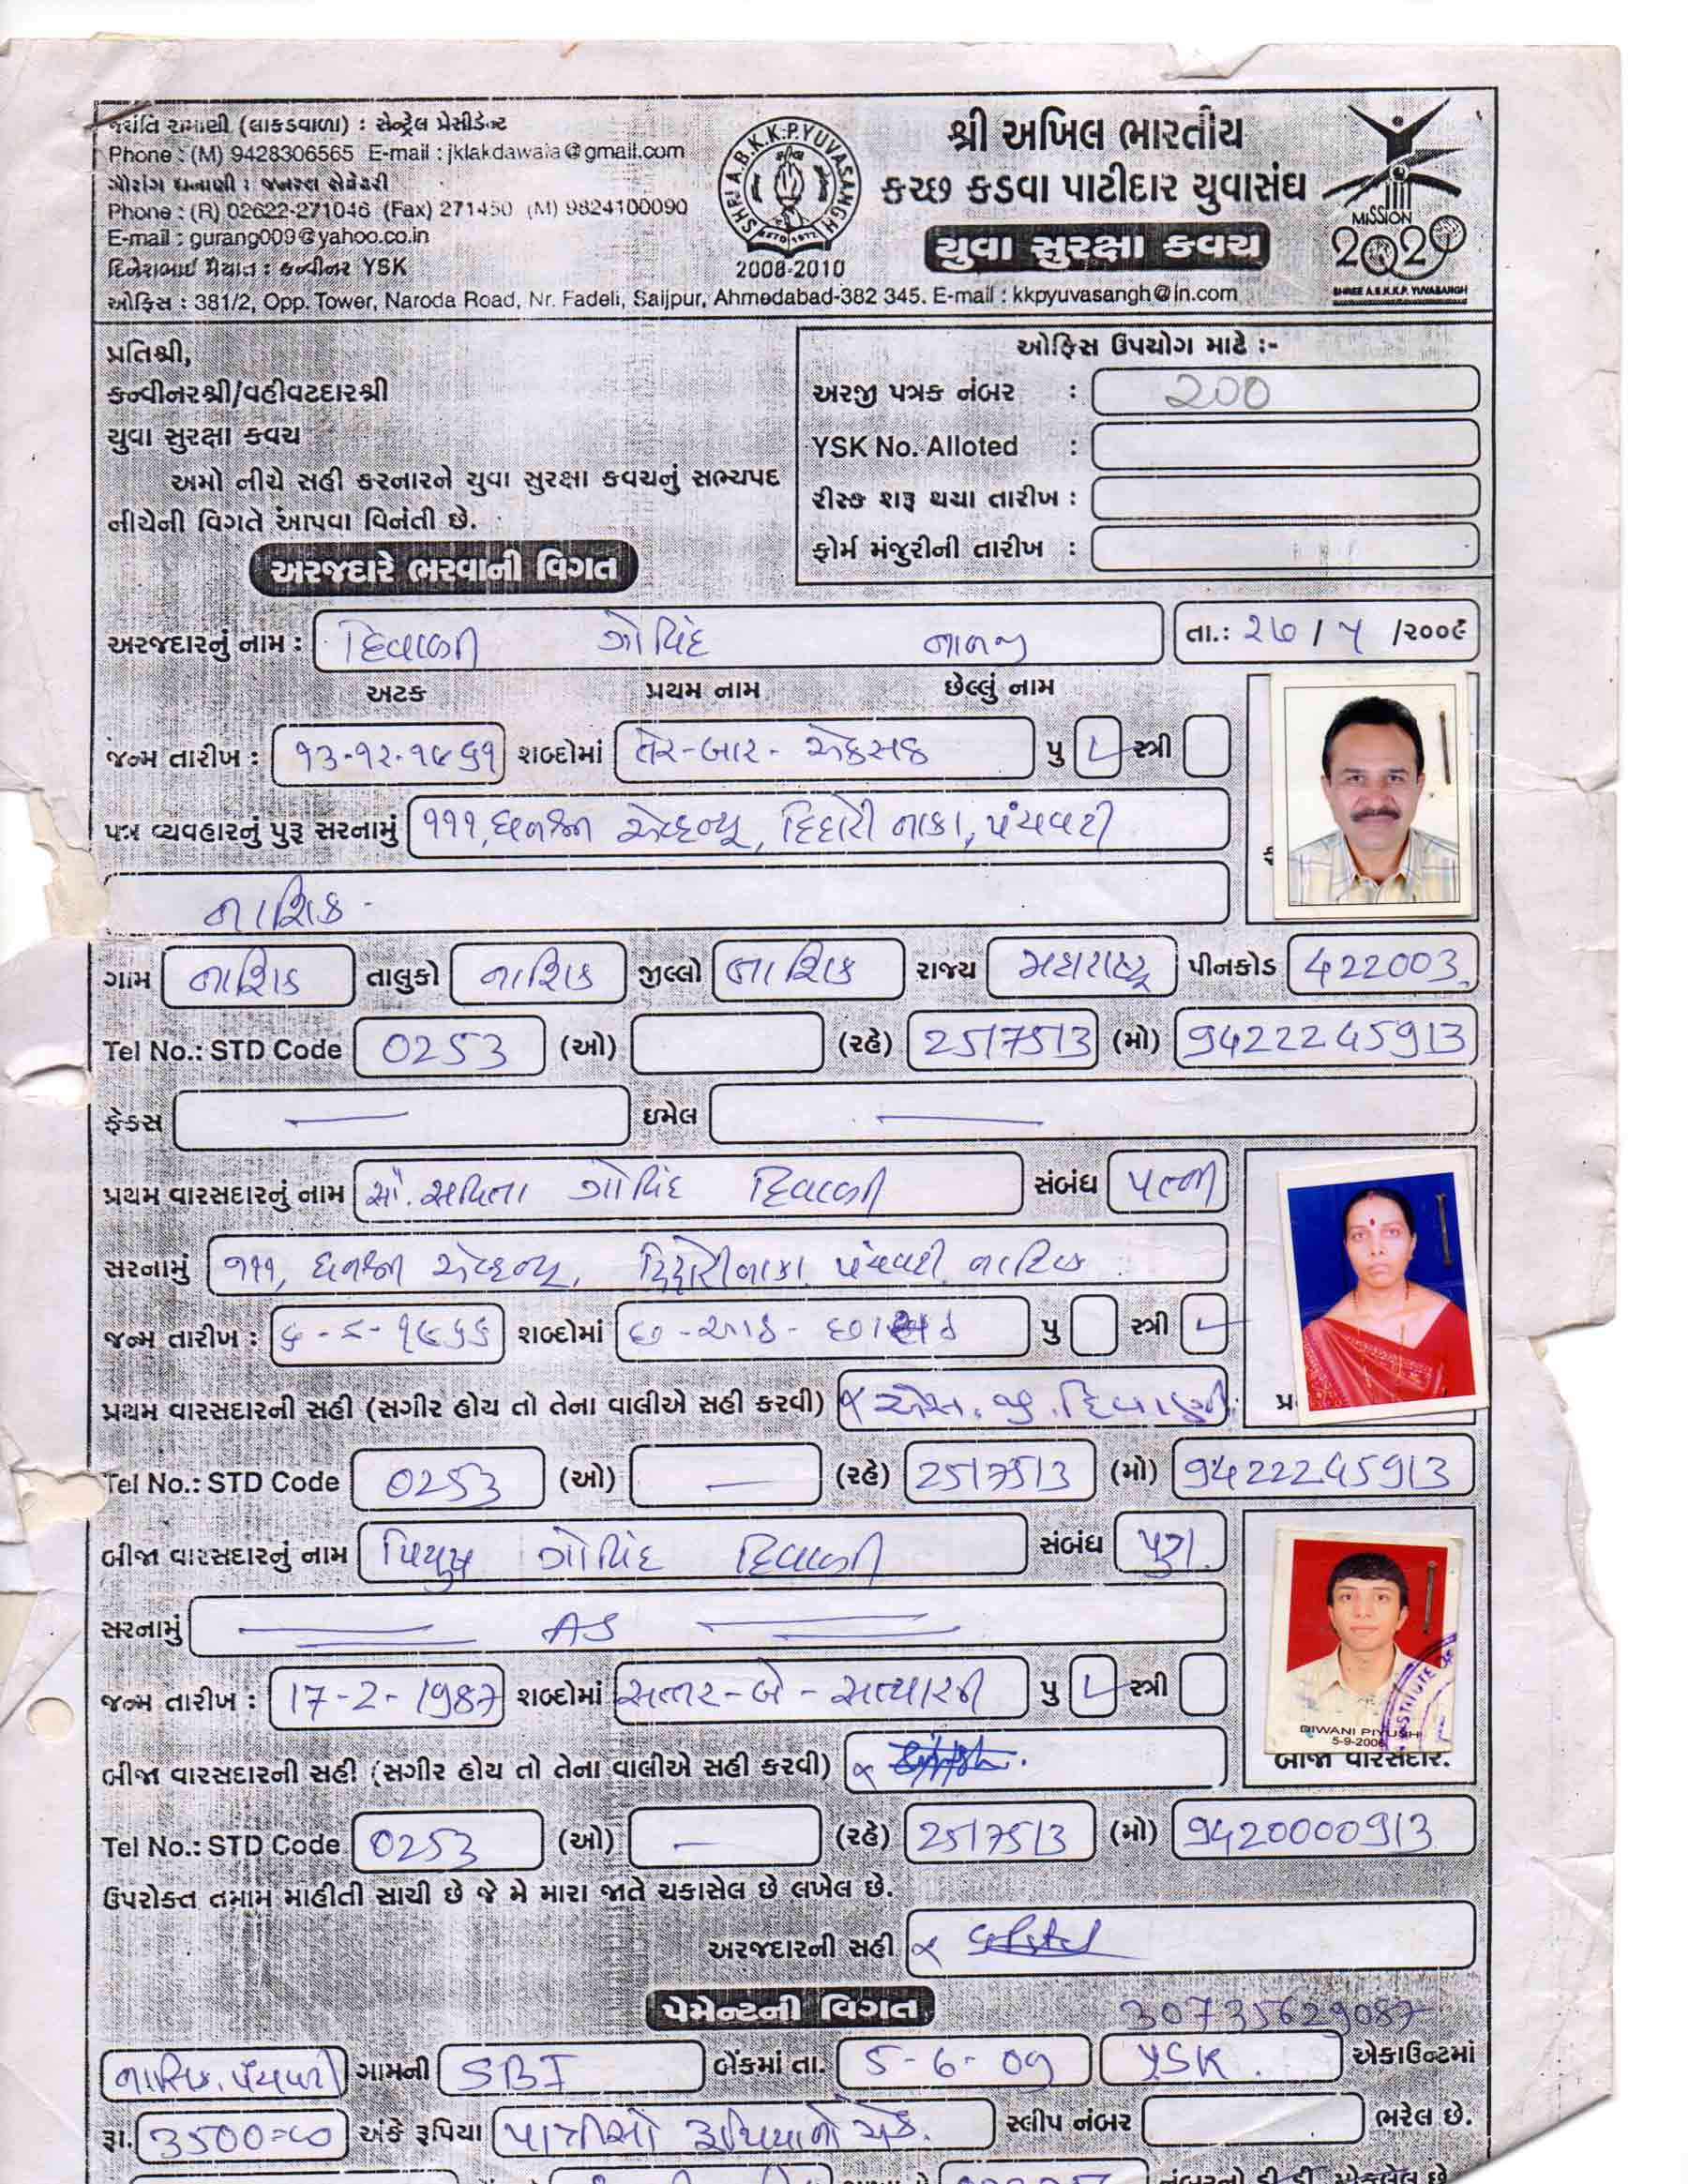 જયંતિ રામાણી (લાકડવાળા) : સેન્ટ્રેલ પ્રેસીડેન્ટ
Phone : (M) 9428306565 E-mail : jklakdawala@gmail.com
ગૌરાંગ ધનાણી : જનરલ સેક્રેટરી
Phone : (R) 02622-271046 (Fax) 271450 (M) 9824100090
E-mail : gurang009@yahoo.co.in
દિનેશભાઈ મૈયાત : કન્વીનર YSK
SHRI A.B.K.K.P. YUVASANGH
ESTD 1972
2008-2010
શ્રી અખિલ ભારતીય
કચ્છ કડવા પાટીદાર યુવાસંઘ
યુવા સુરક્ષા કવચ
MISSION
2020
SHREE A.B.K.K.P. YUVASANGH
ઓફિસ : 381/2, Opp. Tower, Naroda Road, Nr. Fadeli, Saijpur, Ahmedabad-382 345. E-mail : kkpyuvasangh@in.com
પ્રતિશ્રી,
કન્વીનરશ્રી/વહીવટદારશ્રી
યુવા સુરક્ષા કવચ
અમો નીચે સહી કરનારને યુવા સુરક્ષા કવચનું સભ્યપદ
નીચેની વિગતે આપવા વિનંતી છે.
ઓફિસ ઉપયોગ માટે :-
અરજી પત્રક નંબર : 200
YSK No. Alloted :
રીસ્ક શરૂ થયા તારીખ :
ફોર્મ મંજુરીની તારીખ :
અરજદારે ભરવાની વિગત
અરજદારનું નામ : દિવાણી ગોવિંદ નાનજી તા.: ૨૭ / ૫ /૨૦૦૯
અટક પ્રથમ નામ છેલ્લું નામ
જન્મ તારીખ : ૧૩-૧૨-૧૯૬૧ શબ્દોમાં તેર-બાર- એકસઠ પુ સ્ત્રી
પત્ર વ્યવહારનું પુરૂ સરનામું ૧૧૧, ધનશ્રી એવ્હન્યૂ, દિંડોરી નાકા, પંચવટી
નાશિક
ગામ નાશિક તાલુકો નાશિક જીલ્લો નાશિક રાજ્ય મહારાષ્ટ્ર પીનકોડ 422003
Tel No.: STD Code 0253 (ઓ) (રહે) 2517513 (મો) 9422245913
ફેકસ — ઇમેલ —
પ્રથમ વારસદારનું નામ સૌ. સવિતા ગોવિંદ દિવાણી સંબંધ પત્ની
સરનામું ૧૧૧, ધનશ્રી એવ્હન્યૂ, દિંડોરી નાકા પંચવટી નાશિક
જન્મ તારીખ : ૬-૮-૧૯૬૬ શબ્દોમાં છ-આઠ-છાસઠ પુ સ્ત્રી
પ્રથમ વારસદારની સહી (સગીર હોય તો તેના વાલીએ સહી કરવી) એસ. જી. દિવાણી
Tel No.: STD Code 0253 (ઓ) — (રહે) 2517513 (મો) 9422245913
બીજા વારસદારનું નામ પિયુષ ગોવિંદ દિવાણી સંબંધ પુત્ર
સરનામું AS
જન્મ તારીખ : 17-2-1987 શબ્દોમાં સત્તર-બે-સત્યાસી પુ સ્ત્રી
DIWANI PIYUSH
5-9-2006
બીજા વારસદાર.
બીજા વારસદારની સહી (સગીર હોય તો તેના વાલીએ સહી કરવી)
Tel No.: STD Code 0253 (ઓ) — (રહે) 2517513 (મો) 9420000913
ઉપરોક્ત તમામ માહીતી સાચી છે જે મે મારા જાતે ચકાસેલ છે લખેલ છે.
અરજદારની સહી
પેમેન્ટની વિગત
30735629087
નાશિક, પંચવટી ગામની SBI બેંકમાં તા. 5-6-09 YSK એકાઉન્ટમાં
રૂા. 3500=00 અંકે રૂપિયા પાત્રીસો રૂપિયાનો ચેક. સ્લીપ નંબર ભરેલ છે.